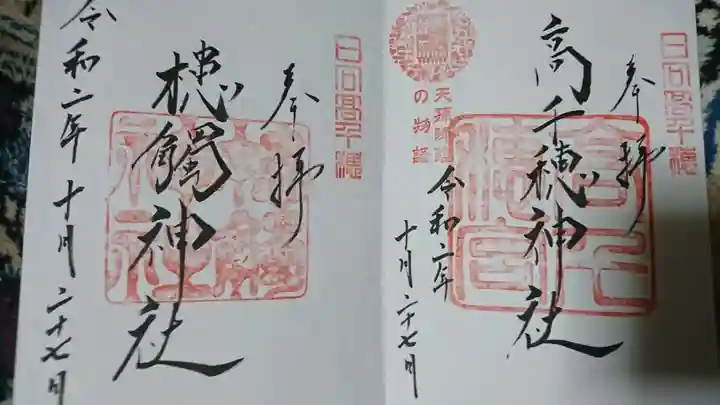 奉拝
日向高千穂
高千穂神社
天孫降臨
の物語
令和二年
十月二十七日
奉拝
日向高千穂
槵觸神社
令和二年十月二十七日